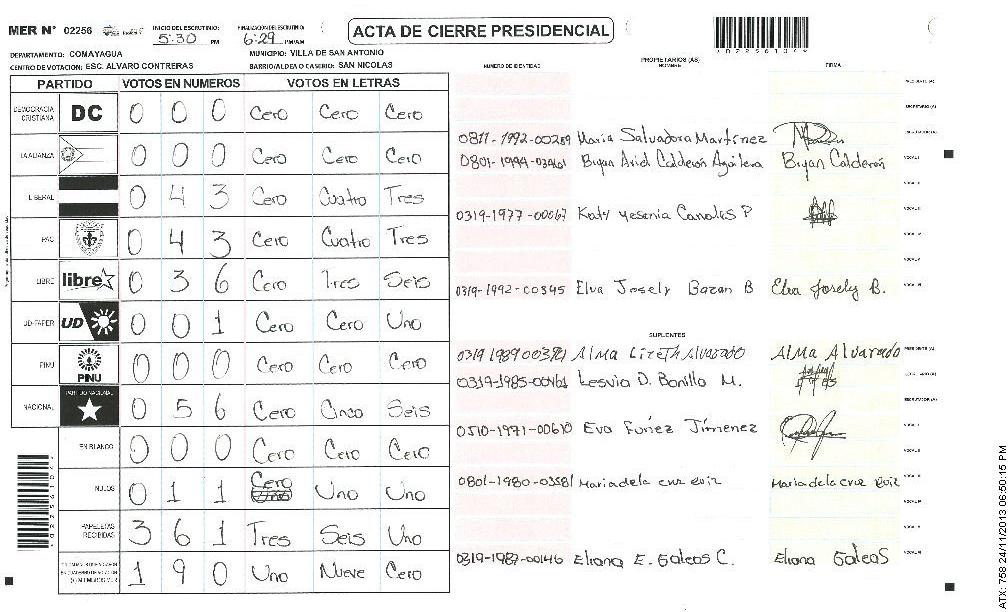 MER N° 02256 INICIO DEL ESCRUTINIO: 5:30 PM FINALIZACION DEL ESCRUTINIO: 6:29 PM/AM ACTA DE CIERRE PRESIDENCIAL
DEPARTAMENTO: COMAYAGUA MUNICIPIO: VILLA DE SAN ANTONIO
CENTRO DE VOTACION: ESC. ALVARO CONTRERAS BARRIO/ALDEA O CASERIO: SAN NICOLAS
PARTIDO VOTOS EN NUMEROS VOTOS EN LETRAS
DEMOCRACIA CRISTIANA DC 0 0 0 Cero Cero Cero
LA ALIANZA 0 0 0 Cero Cero Cero
LIBERAL 0 4 3 Cero Cuatro Tres
PAC 0 4 3 Cero Cuatro Tres
LIBRE libre 0 3 6 Cero Tres Seis
UD-FAPER UD 0 0 1 Cero Cero Uno
PINU PINU 0 0 0 Cero Cero Cero
NACIONAL PARTIDO NACIONAL 0 5 6 Cero Cinco Seis
EN BLANCO 0 0 0 Cero Cero Cero
NULOS 0 1 1 Cero Uno Uno
PAPELETAS RECIBIDAS 3 6 1 Tres Seis Uno
1 9 0 Uno Nueve Cero
PROPIETARIOS (AS)
NUMERO DE IDENTIDAD NOMBRE FIRMA
0811-1992-00289 Maria Salvadora Martinez
Bryan Ariel Calderón Aguilera Bryan Calderón
0319-1977-00067 Katy Yesenia Canales P
0319-1992-00345 Elva Josely Bazan B Elva Josely B.
SUPLENTES
Alma Lizeth Alvarado Alma Alvarado
0319-1985-00464 Lesvia D. Bonilla M.
0510-1971-00610 Eva Funez Jimenez
0801-1980-03581 Maria dela cruz Ruiz Maria dela cruz Ruiz
0319-1987-00146 Eliana E. Galeas C. Eliana Galeas
ATX: 758 24/11/2013 06:50:15 PM